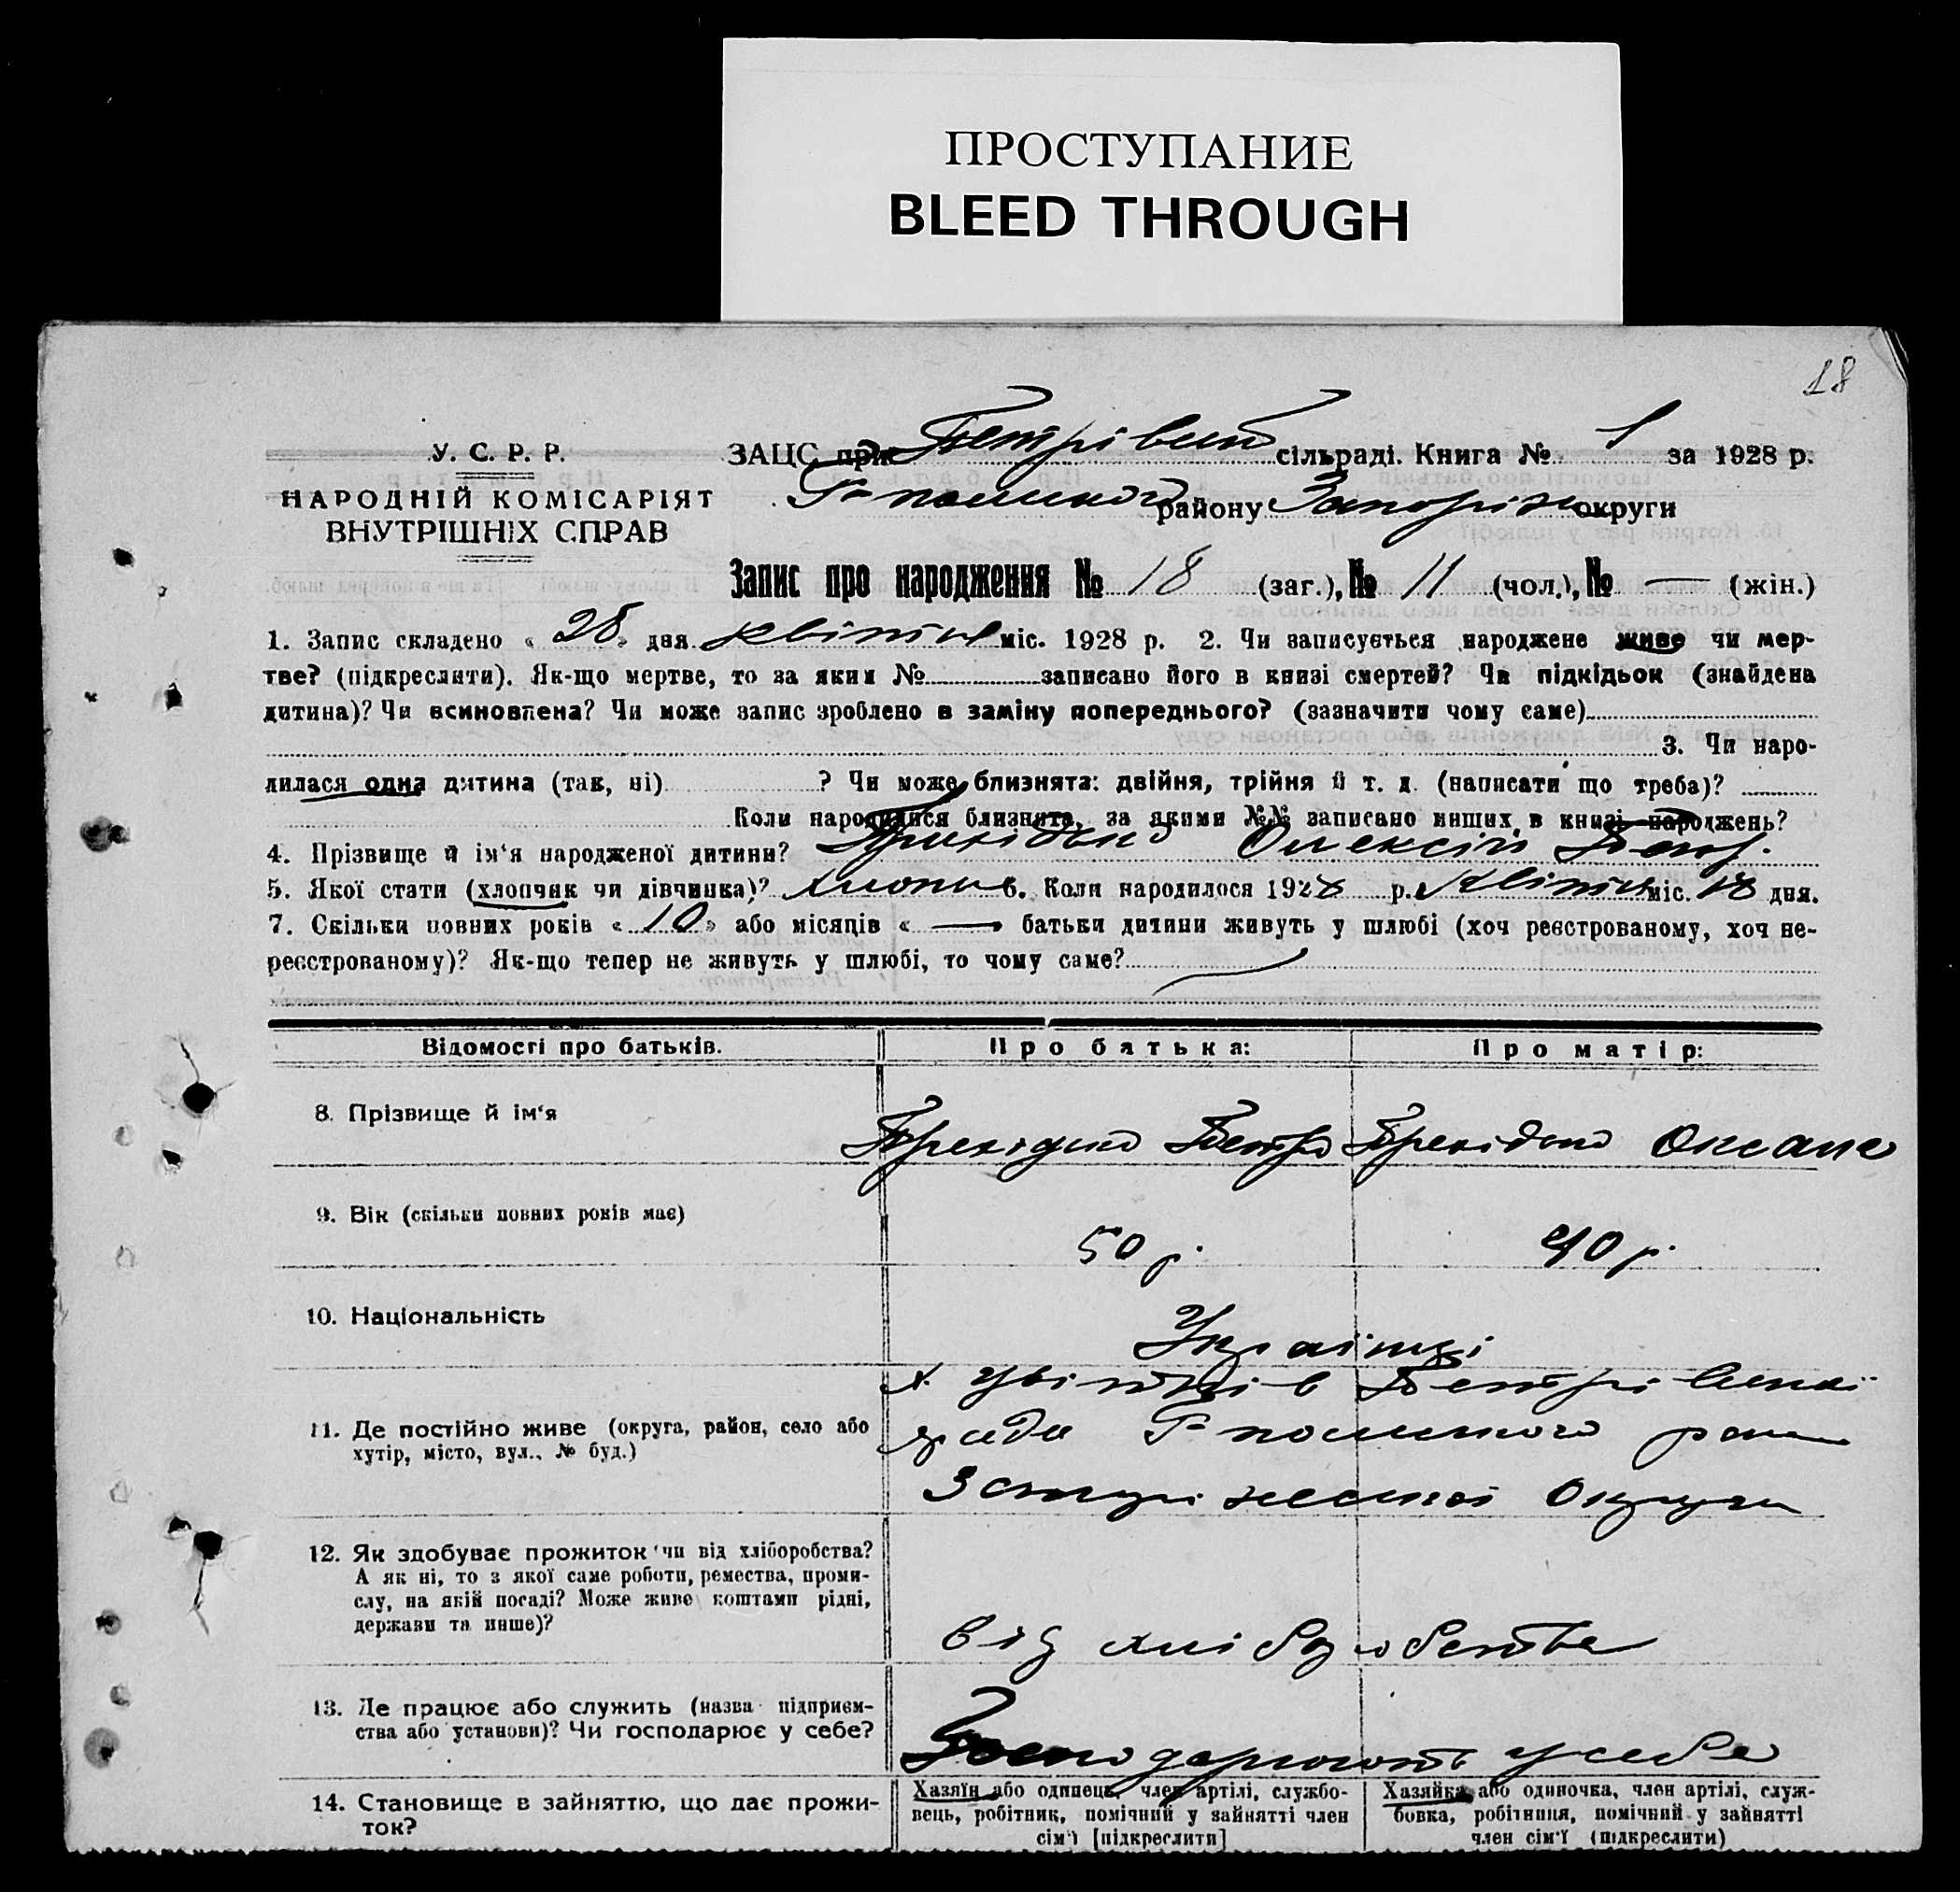 ПРОСТУПАНИЕ
BLEED THROUGH
18
У. С. Р. Р.
НАРОДНІЙ КОМІСАРІЯТ
ВНУТРІШНІХ СПРАВ
ЗАЦС при Петрівській сільраді. Книга № 1 за 1928 р.
Г-польського району Запоріж округи
Запис про народження № 18 (заг.), № 11 (чол.), № — (жін.)
1. Запис складено « 28 » дня квітня міс. 1928 р. 2. Чи записується народжене живе чи мер-
тве? (підкреслити). Як-що мертве, то за яким № записано його в книзі смертей? Чи підкідьок (знайдена
дитина)? Чи всиновлена? Чи може запис зроблено в заміну попереднього? (зазначити чому саме)
3. Чи наро-
дилася одна дитина (так, ні) ? Чи може близнята: двійня, трійня й т. д. (написати що треба)?
Коли народилися близнята, за якими №№ записано инших в книзі народжень?
4. Прізвище й ім'я народженої дитини? Олексій Петр.
5. Якої стати (хлопчик чи дівчинка)? хлопчик 6. Коли народилося 1928 р. квітня міс. 18 дня.
7. Скільки повних років « 10 » або місяців « — » батьки дитини живуть у шлюбі (хоч реєстрованому, хоч не-
реєстрованому)? Як-що тепер не живуть у шлюбі, то чому саме?
Відомості про батьків. Про батька: Про матір:
8. Прізвище й ім'я Петро
9. Вік (скільки повних років має) 50 р. 40 р.
10. Національність Українці
х. Петрівської
11. Де постійно живе (округа, район, село або
хутір, місто, вул., № буд.)
ради Г-польского району
Запоріжської Округи
12. Як здобуває прожиток чи від хліборобства?
А як ні, то з якої саме роботи, ремества, проми-
слу, на якій посаді? Може живе коштами рідні,
держави та инше)?
від хліборобства
13. Де працює або служить (назва підприєм-
ства або установи)? Чи господарює у себе?
Господарюють у себе
14. Становище в зайняттю, що дає прожи-
ток?
Хазяїн або одинець, член артілі, службо-
вець, робітник, помічний у зайнятті член
сім'ї [підкреслити]
Хазяйка або одиночка, член артілі, служ-
бовка, робітниця, помічний у зайнятті
член сім'ї (підкреслити)